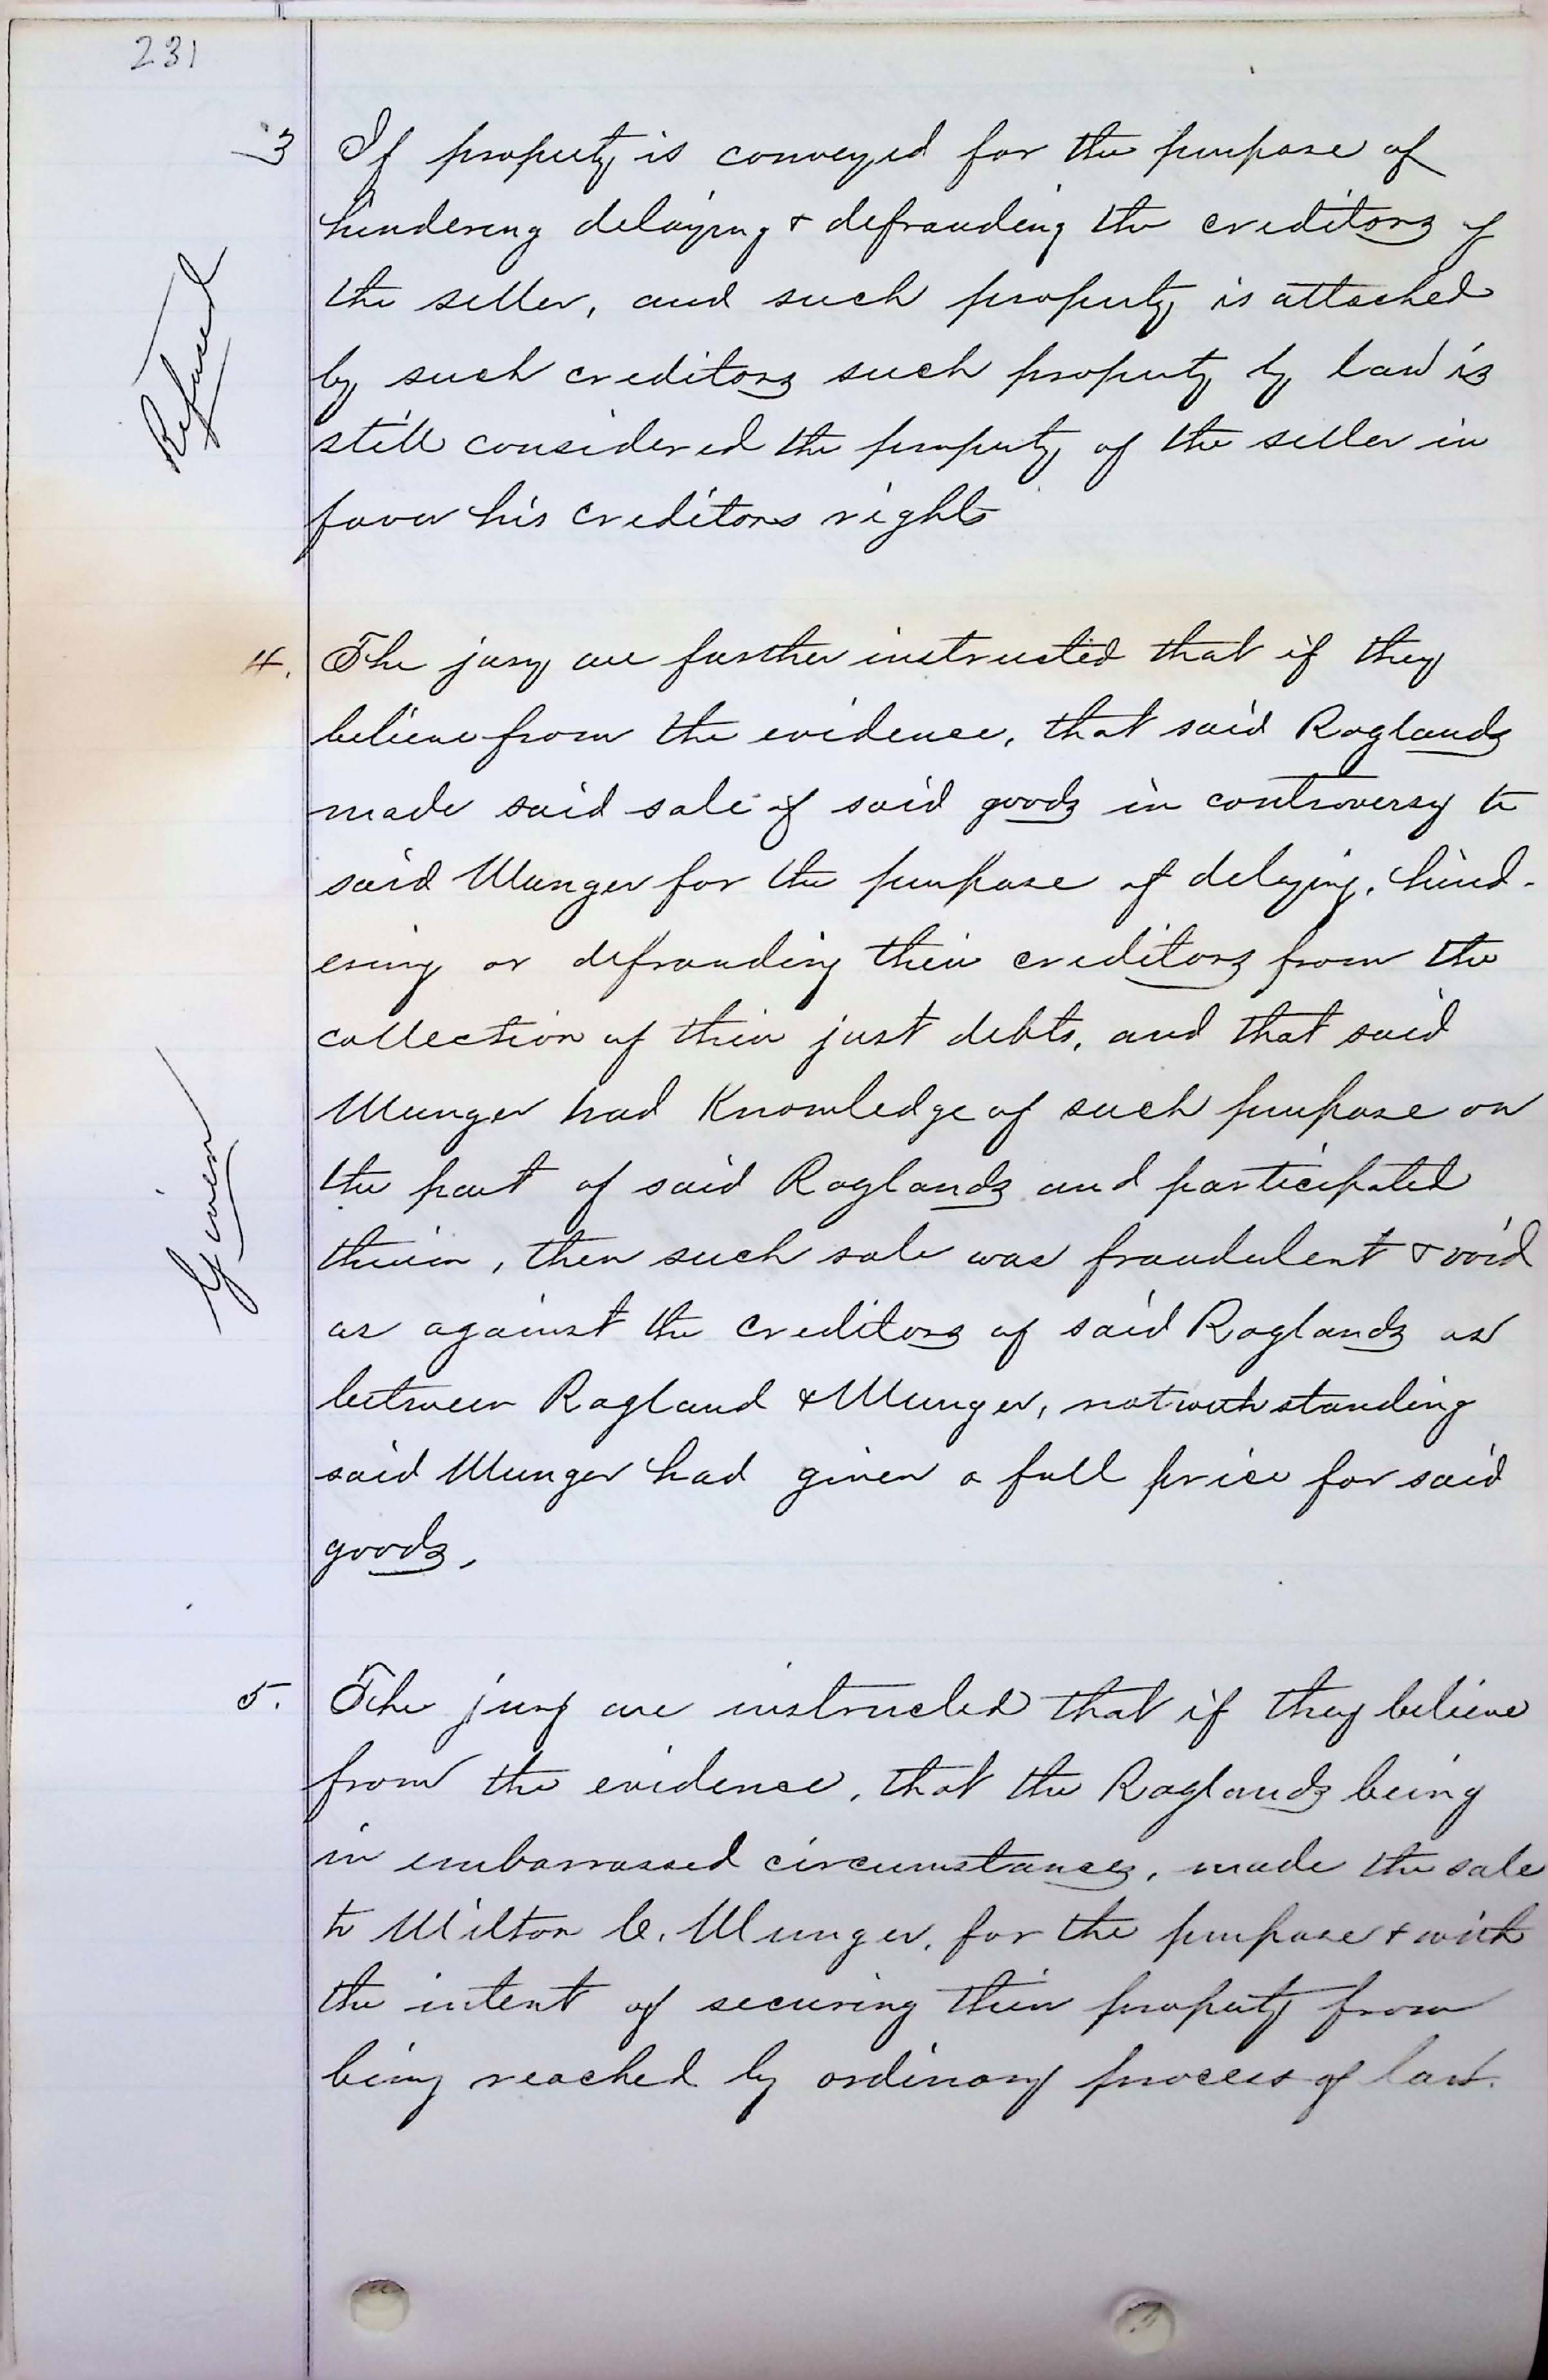 231
3 If property is conveyed for the purpose of
hindering delaying & defrauding the creditors of
the seller, and such property is attached
by such creditors such property by law is
still considered the property of the seller in
favor his creditors rights
Refused
4. The jury are further instructed that if they
believe from the evidence, that said Raglands
made said sale of said goods in controversy to
said Munger for the purpose of delaying, hind-
ering or defrauding their creditors from the
collection of their just debts, and that said
Munger had Knowledge of such purpose on
the part of said Raglands and participated
therein, then such sale was fraudulent & void
as against the creditors of said Raglands as
between Ragland & Munger, notwithstanding
said Munger had given a full price for said
goods.
Given
5. The jury are instructed that if they believe
from the evidence, that the Raglands being
in embarrassed circumstances, made the sale
to Milton C. Munger, for the purpose & with
the intent of securing their property from
being reached by ordinary process of law.